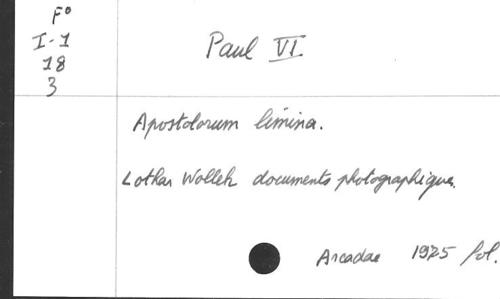 F°
I-1
18
3
Paul VI.
Apostolorum limina.
Lothar Wolleh documents photographiques.
Arcadae 1975 fol.